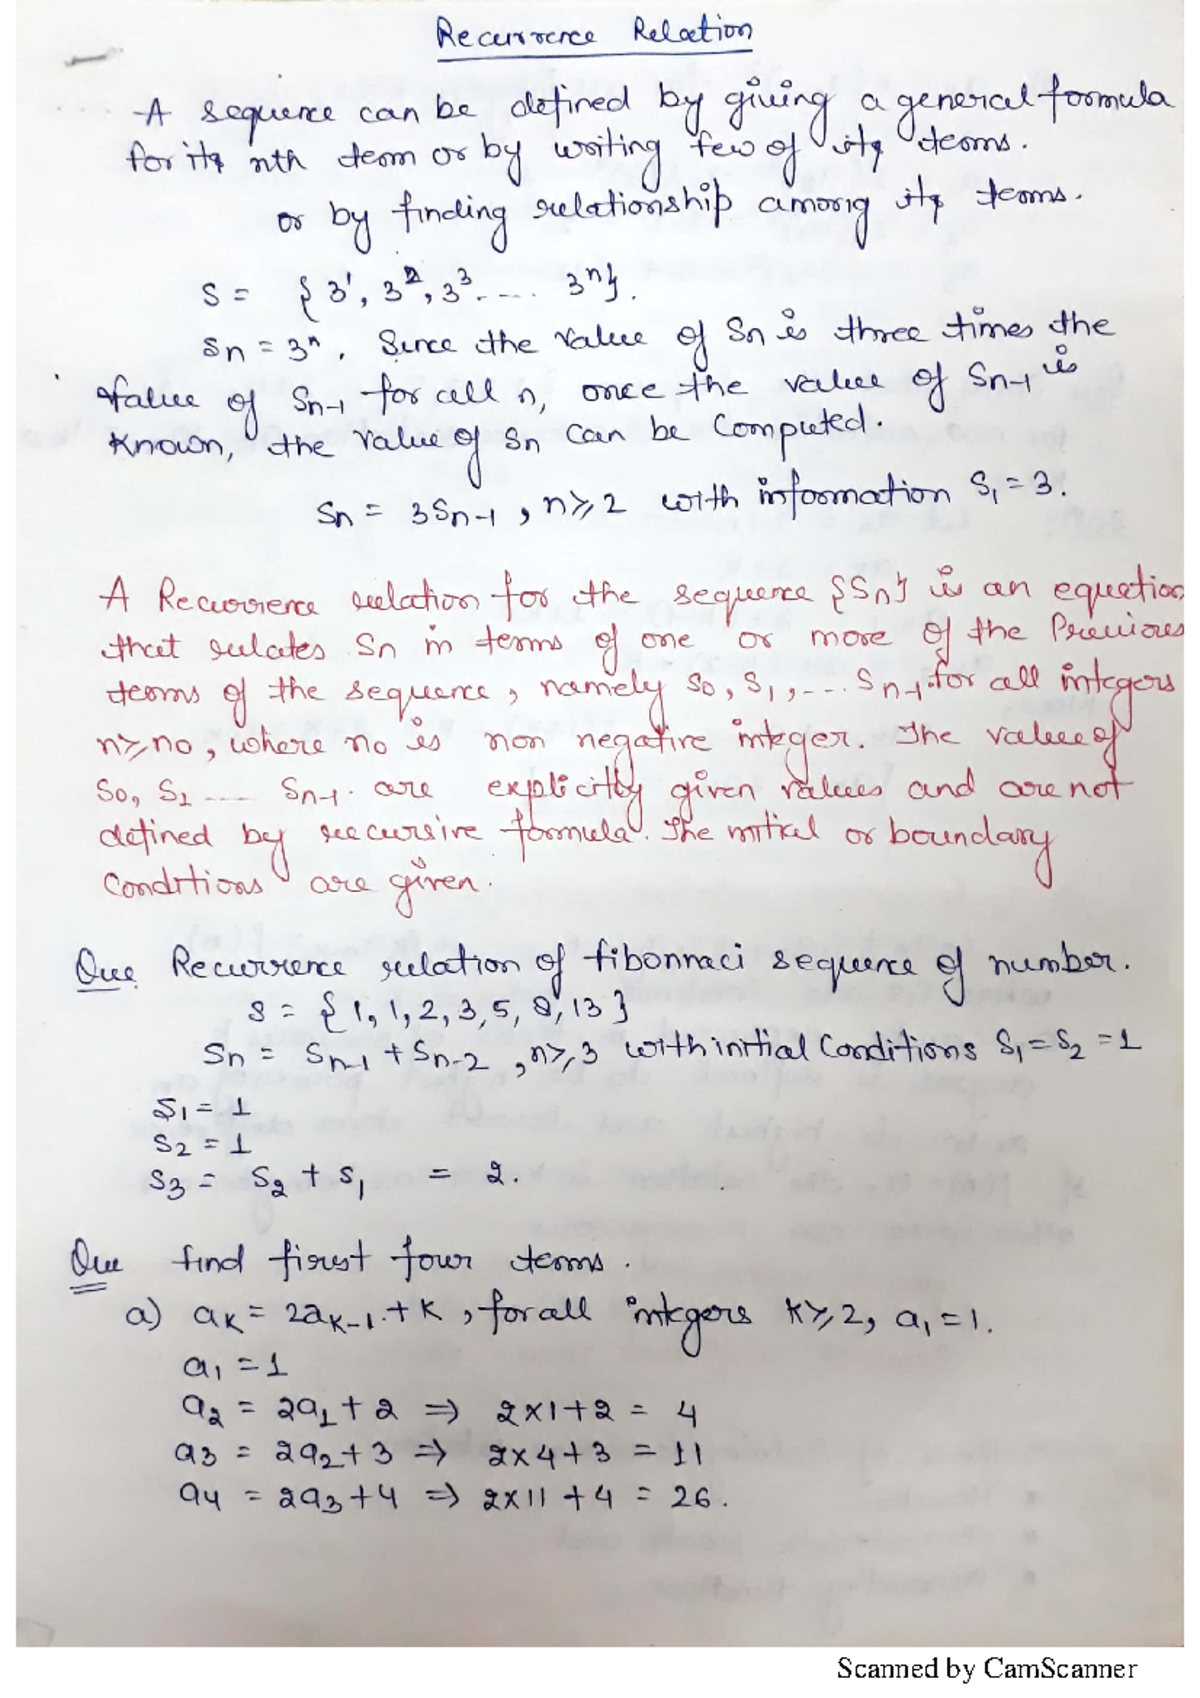 Recurrence Relation
A sequence can be defined by giving a general formula
for its nth term or by writing few of its terms.
or by finding relationship among its terms.
S = {3¹, 3², 3³ .... 3ⁿ}.
Sn = 3ⁿ. Since the value of Sn is three times the
value of Sn-1 for all n, once the value of Sn-1 is
known, the value of Sn can be computed.
Sn = 3Sn-1, n≥2 with information S₁ = 3.
A Recurrence relation for the sequence {Sn} is an equation
that relates Sn in terms of one or more of the previous
terms of the sequence, namely S0, S1, .... Sn-1 for all integers
n≥n0, where n0 is non negative integer. The value of
S0, S1 .... Sn-1. are explicitly given values and are not
defined by recursive formula. The initial or boundary
conditions are given.
Que Recurrence relation of fibonnaci sequence of number.
S = {1, 1, 2, 3, 5, 8, 13}
Sn = Sn-1 + Sn-2, n≥3 with initial conditions S₁ = S₂ = 1
S₁ = 1
S₂ = 1
S₃ = S₂ + S₁ = 2.
Que find first four terms.
a) aK = 2aK-1 + K, for all integers K≥2, a₁ = 1.
a₁ = 1
a₂ = 2a₁ + 2 ⇒ 2×1+2 = 4
a₃ = 2a₂ + 3 ⇒ 2×4+3 = 11
a₄ = 2a₃ + 4 ⇒ 2×11+4 = 26.
Scanned by CamScanner